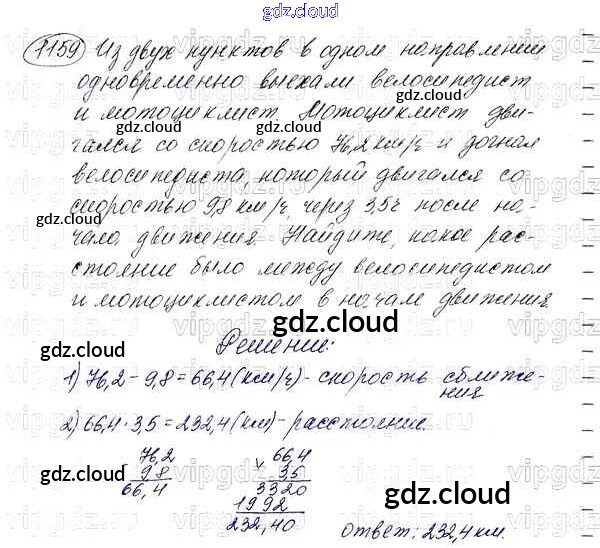 gdz.cloud
1159 Из двух пунктов в одном направлении
одновременно выехали велосипедист
и мотоциклист. Мотоциклист дви-
гался со скоростью 76,2 км/ч и догнал
велосипедиста, который двигался со
скоростью 9,8 км/ч, через 3,5 ч после на-
чала движения. Найдите, какое рас-
стояние было между велосипедистом
и мотоциклистом в начале движения.
gdz.cloud
Решение:
1) 76,2 - 9,8 = 66,4 (км/ч) - скорость сближе-
ния
2) 66,4 · 3,5 = 232,4 (км) - расстояние.
76,2
9,8
66,4
66,4
× 3,5
3320
1992
232,40
Ответ: 232,4 км.